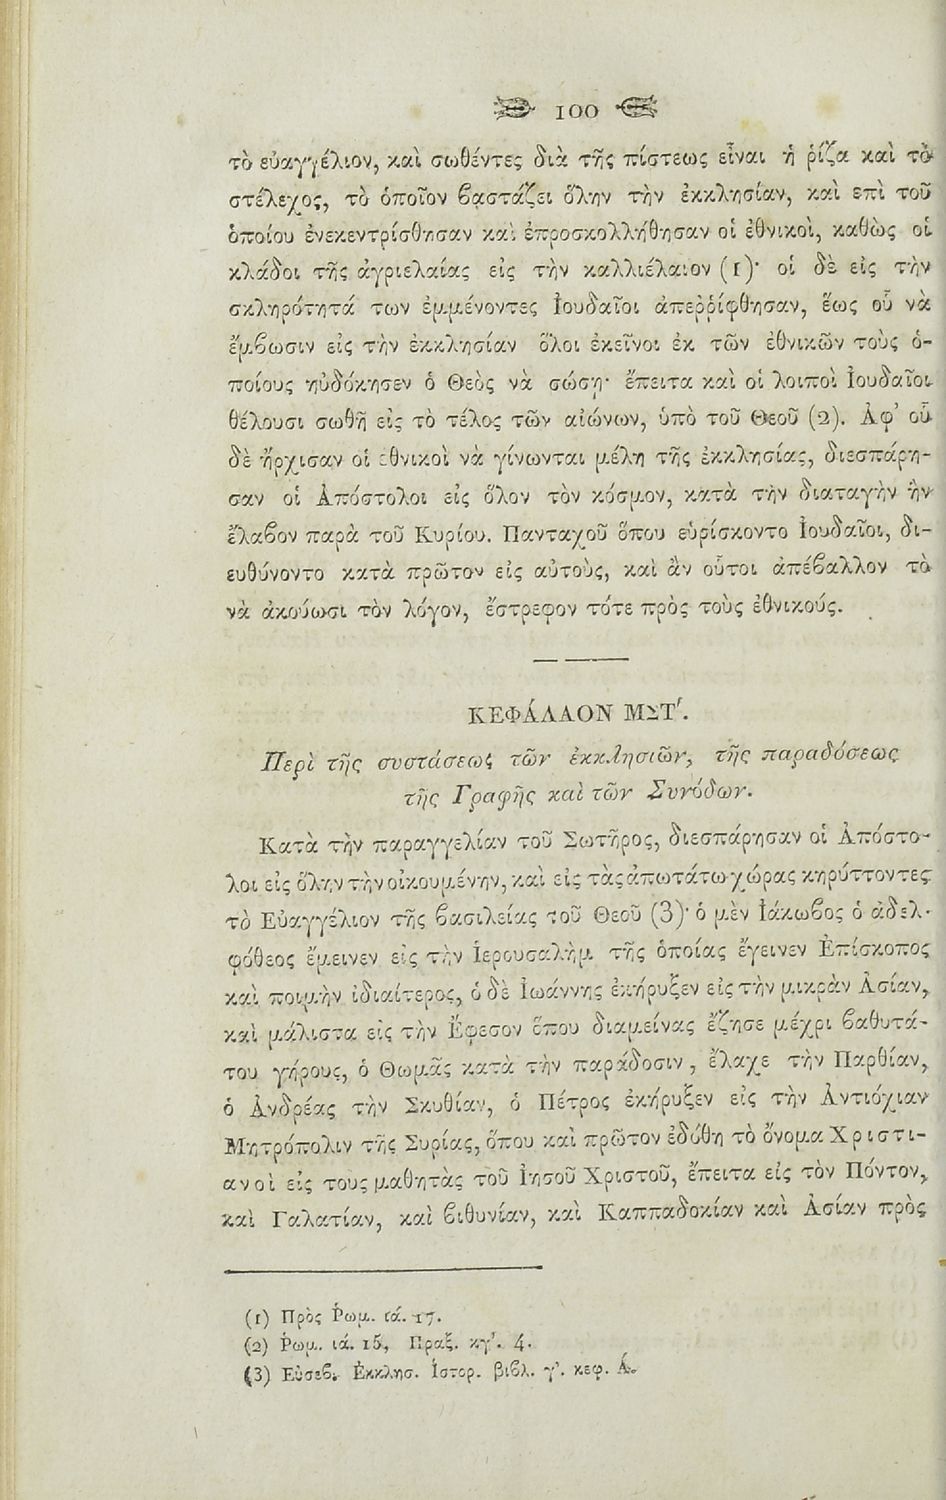 100
τὸ εὐαγγέλιον, καὶ σωθέντες διὰ τῆς πίστεως εἶναι ἡ ῥίζα καὶ τὸ
στέλεχος, τὸ ὁποῖον βαστάζει ὅλην τὴν ἐκκλησίαν, καὶ επὶ τοῦ
ὁποίου ἐνεκεντρίσθησαν καὶ ἐπροσκολλήθησαν οἱ ἐθνικοὶ, καθὼς οἱ
κλάδοι τῆς ἀγριελαίας εἰς τὴν καλλιέλαιον (1)· οἱ δὲ εἰς τὴν
σκληρότητά των ἐμμένοντες Ἰουδαῖοι ἀπεῤῥίφθησαν, ἕως οὗ νὰ
ἔμβωσιν εἰς τὴν ἐκκλησίαν ὅλοι ἐκεῖνοι ἐκ τῶν ἐθνικῶν τοὺς ὁ-
ποίους ηὐδόκησεν ὁ Θεὸς νὰ σώσῃ· ἔπειτα καὶ οἱ λοιποὶ Ἰουδαῖοι
θέλουσι σωθῆ εἰς τὸ τέλος τῶν αἰώνων, ὑπὸ τοῦ Θεοῦ (2). Ἀφ’ οὗ
δὲ ἤρχισαν οἱ ἐθνικοὶ νὰ γίνωνται μέλη τῆς ἐκκλησίας, διεσπάρη-
σαν οἱ Ἀπόστολοι εἰς ὅλον τὸν κόσμον, κατὰ τὴν διαταγὴν ἣν
ἔλαβον παρὰ τοῦ Κυρίου. Πανταχοῦ ὅπου εὑρίσκοντο Ἰουδαῖοι, δι-
ευθύνοντο κατὰ πρῶτον εἰς αὐτοὺς, καὶ ἂν οὗτοι ἀπέβαλλον τὸ
νὰ ἀκούωσι τὸν λόγον, ἔστρεφον τότε πρὸς τοὺς ἐθνικούς.
ΚΕΦΆΛΑΟΝ ΜΣΤʹ.
Περὶ τῆς συστάσεως τῶν ἐκκλησιῶν, τῆς παραδόσεως
τῆς Γραφῆς καὶ τῶν Συνόδων.
Κατὰ τὴν παραγγελίαν τοῦ Σωτῆρος, διεσπάρησαν οἱ Ἀπόστο-
λοι εἰς ὅλην τὴν οἰκουμένην, καὶ εἰς τὰς ἀπωτάτω χώρας κηρύττοντες
τὸ Εὐαγγέλιον τῆς βασιλείας τοῦ Θεοῦ (3)· ὁ μὲν Ἰάκωβος ὁ ἀδελ-
φόθεος ἔμεινεν εἰς τὴν Ἱερουσαλὴμ τῆς ὁποίας ἔγεινεν Ἐπίσκοπος
καὶ ποιμὴν ἰδιαίτερος, ὁ δὲ Ἰωάννης ἐκήρυξεν εἰς τὴν μικρὰν Ἀσίαν,
καὶ μάλιστα εἰς τὴν Ἔφεσον ὅπου διαμείνας ἔζησε μέχρι βαθυτά-
του γήρους, ὁ Θωμᾶς κατὰ τὴν παράδοσιν, ἔλαχε τὴν Παρθίαν,
ὁ Ἀνδρέας τὴν Σκυθίαν, ὁ Πέτρος ἐκήρυξεν εἰς τὴν Ἀντιόχιαν
Μητρόπολιν τῆς Συρίας, ὅπου καὶ πρῶτον ἐδόθη τὸ ὄνομα Χριστι-
ανοὶ εἰς τους μαθητὰς τοῦ Ἰησοῦ Χριστοῦ, ἔπειτα εἰς τὸν Πόντον,
καὶ Γαλατίαν, καὶ βιθυνίαν, καὶ Καππαδοκίαν καὶ Ἀσίαν πρὸς
(1) Πρὸς Ῥωμ. ιά. 17.
(2) Ῥωμ. ιά. 15, Πραξ. κγʹ. 4.
(3) Εὐσεβ. Ἐκκλησ. Ἱστορ. βιβλ. γʹ. κεφ. Ά.